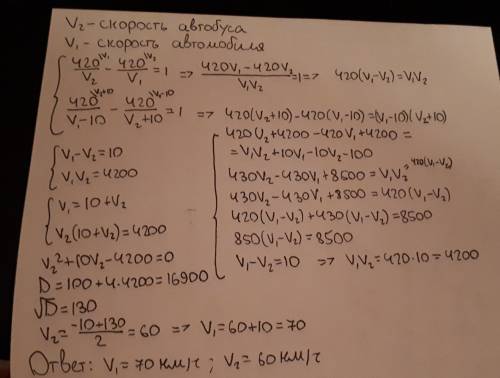 V₂ - скорость автобуса
V₁ - скорость автомобиля
420^{\V₁}/V₂ - 420^{\V₂}/V₁ = 1 => (420V₁ - 420V₂)/(V₁V₂) = 1 => 420(V₁-V₂) = V₁V₂
420^{\V₂+10}/(V₁-10) - 420^{\V₁-10}/(V₂+10) = 1 => 420(V₂+10) - 420(V₁-10) = (V₁-10)(V₂+10)
420V₂ + 4200 - 420V₁ + 4200 =
= V₁V₂ + 10V₁ - 10V₂ - 100
430V₂ - 430V₁ + 8500 = V₁V₂ = 420(V₁-V₂)
430V₂ - 430V₁ + 8500 = 420(V₁-V₂)
420(V₁-V₂) + 430(V₁-V₂) = 8500
850(V₁-V₂) = 8500
V₁-V₂ = 10 => V₁V₂ = 420·10 = 4200
V₁-V₂ = 10
V₁V₂ = 4200
V₁ = 10 + V₂
V₂(10+V₂) = 4200
V₂² + 10V₂ - 4200 = 0
D = 100 + 4·4200 = 16900
√D = 130
V₂ = (-10+130)/2 = 60 => V₁ = 60 + 10 = 70
Ответ: V₁ = 70 км/ч ; V₂ = 60 км/ч